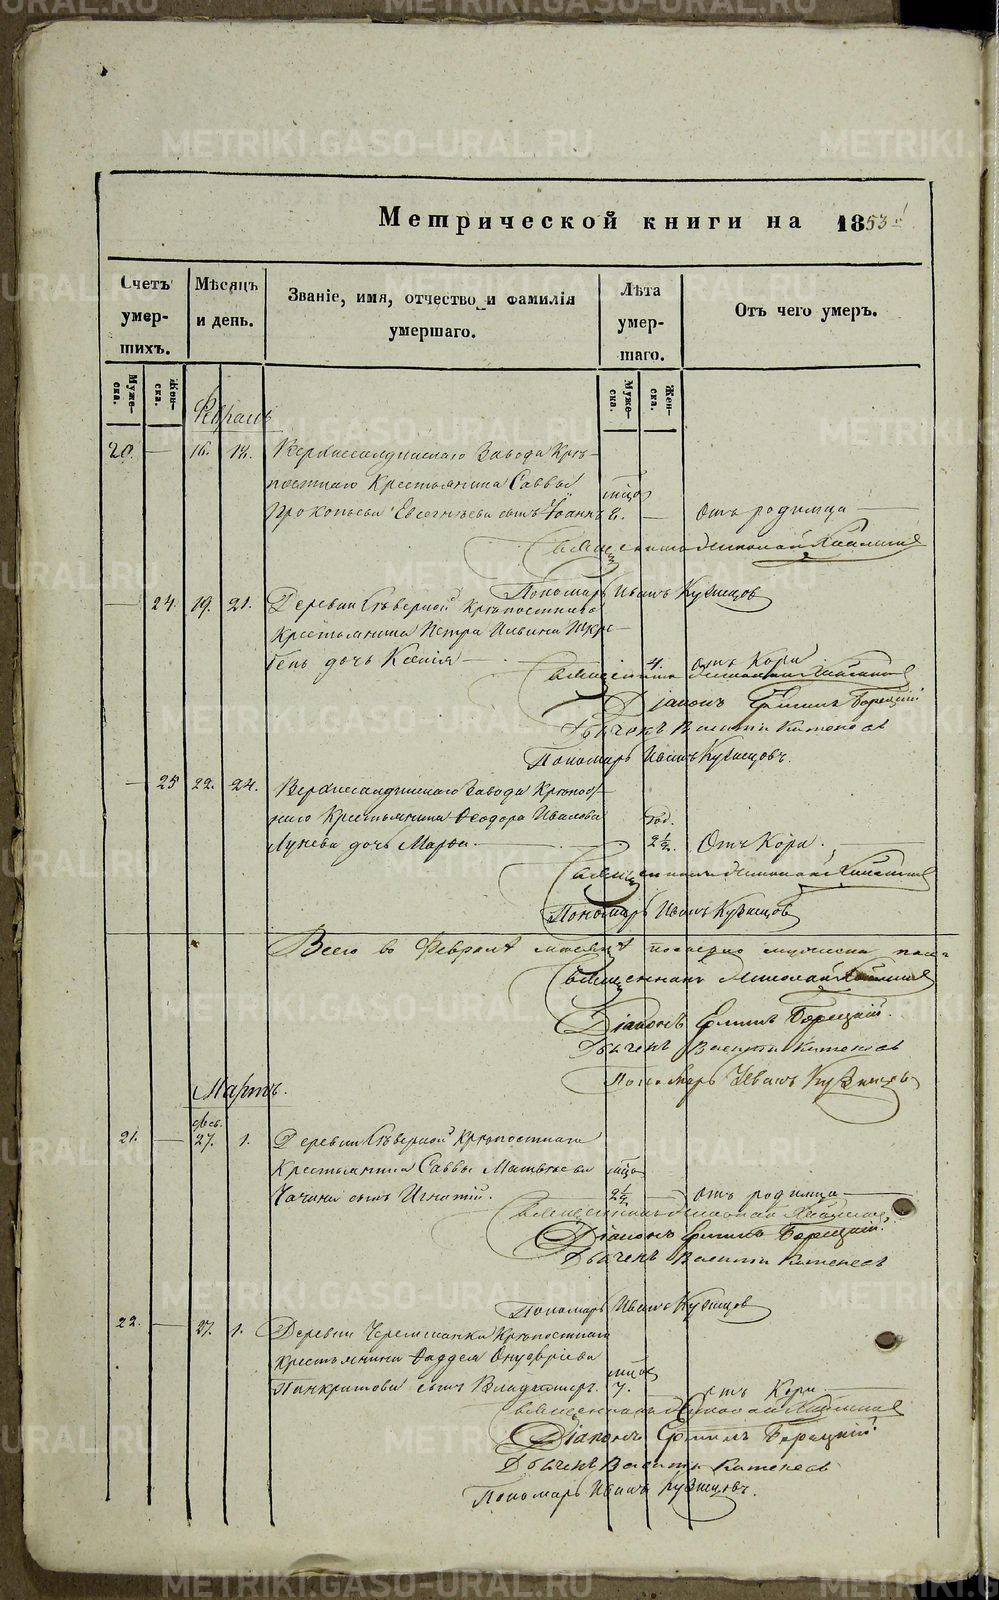 Метрической книги на 1853 й
Счетъ умершихъ.
Мѣсяцъ и день.
Званіе, имя, отчество и фамилія умершаго.
Лѣта умершаго.
Отъ чего умеръ.
Муже-ска.
Жен-ска.
Муже-ска.
Жен-ска.
Февраль
20. — 16. 18. Верхнесалдинскаго Завода Крѣ-
постнаго Крестьянина Саввы мѣсяц
Прокопьева Евсигнѣева сынъ Іоаннъ 8. — Отъ родимца
Священникъ Николай
Пономарь Иванъ Кузнецовъ
— 24. 19. 21. Деревни Сѣверной Крѣпостнаго
Крестьянина Петра
дочь Ксенія — 4. отъ Кори
Священникъ Николай
Діаконъ Ермилъ Борецкій
Дьячекъ Василій
Пономарь Иванъ Кузнецовъ.
— 25 22. 24. Верхнесалдинскаго Завода Крѣпост-
наго Крестьянина Ѳеодора Иванова год.
дочь Марѳа. — 2½. Отъ Кори.
Священникъ Николай
Пономарь Иванъ Кузнецовъ
Всего въ Февралѣ мѣсяцѣ
Священникъ Николай
Діаконъ Ермилъ Борецкій.
Дьячекъ Василій
Пономарь Иванъ Кузнецовъ
Мартъ.
фев.
21. — 27. 1. Деревни Сѣверной Крѣпостнаго
Крестьянина Саввы Матвѣева мѣсяц
сынъ Игнатій. 2½ — отъ родимца
Священникъ Николай
Діаконъ Ермилъ Борецкій.
Дьячекъ Василій
Пономарь Иванъ Кузнецовъ
22. — 27. 1. Деревни Черемшанки Крѣпостнаго
крестьянина Ѳаддея Онуфріева мѣсяц
Панкратова сынъ Владимиръ. 7. отъ Кори
Священникъ Николай
Діаконъ Ермилъ Борецкій.
Дьячекъ Василій
Пономарь Иванъ Кузнецовъ.
METRIKI.GASO-URAL.RU